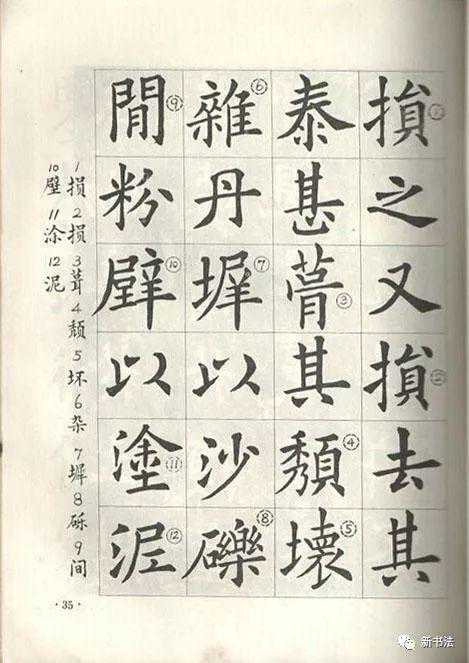 損①之又損②去其
泰甚葺③其頹④壞⑤
雜⑥丹墀⑦以沙礫⑧
閒⑨粉壁⑩以塗⑪泥⑫
1损 2损 3葺 4颓 5坏 6杂 7墀 8砾 9间
10壁 11涂 12泥
·35·
新书法